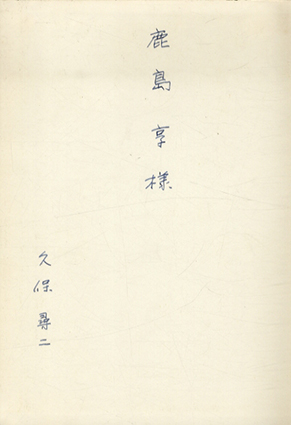 鹿島享様
久保尋二